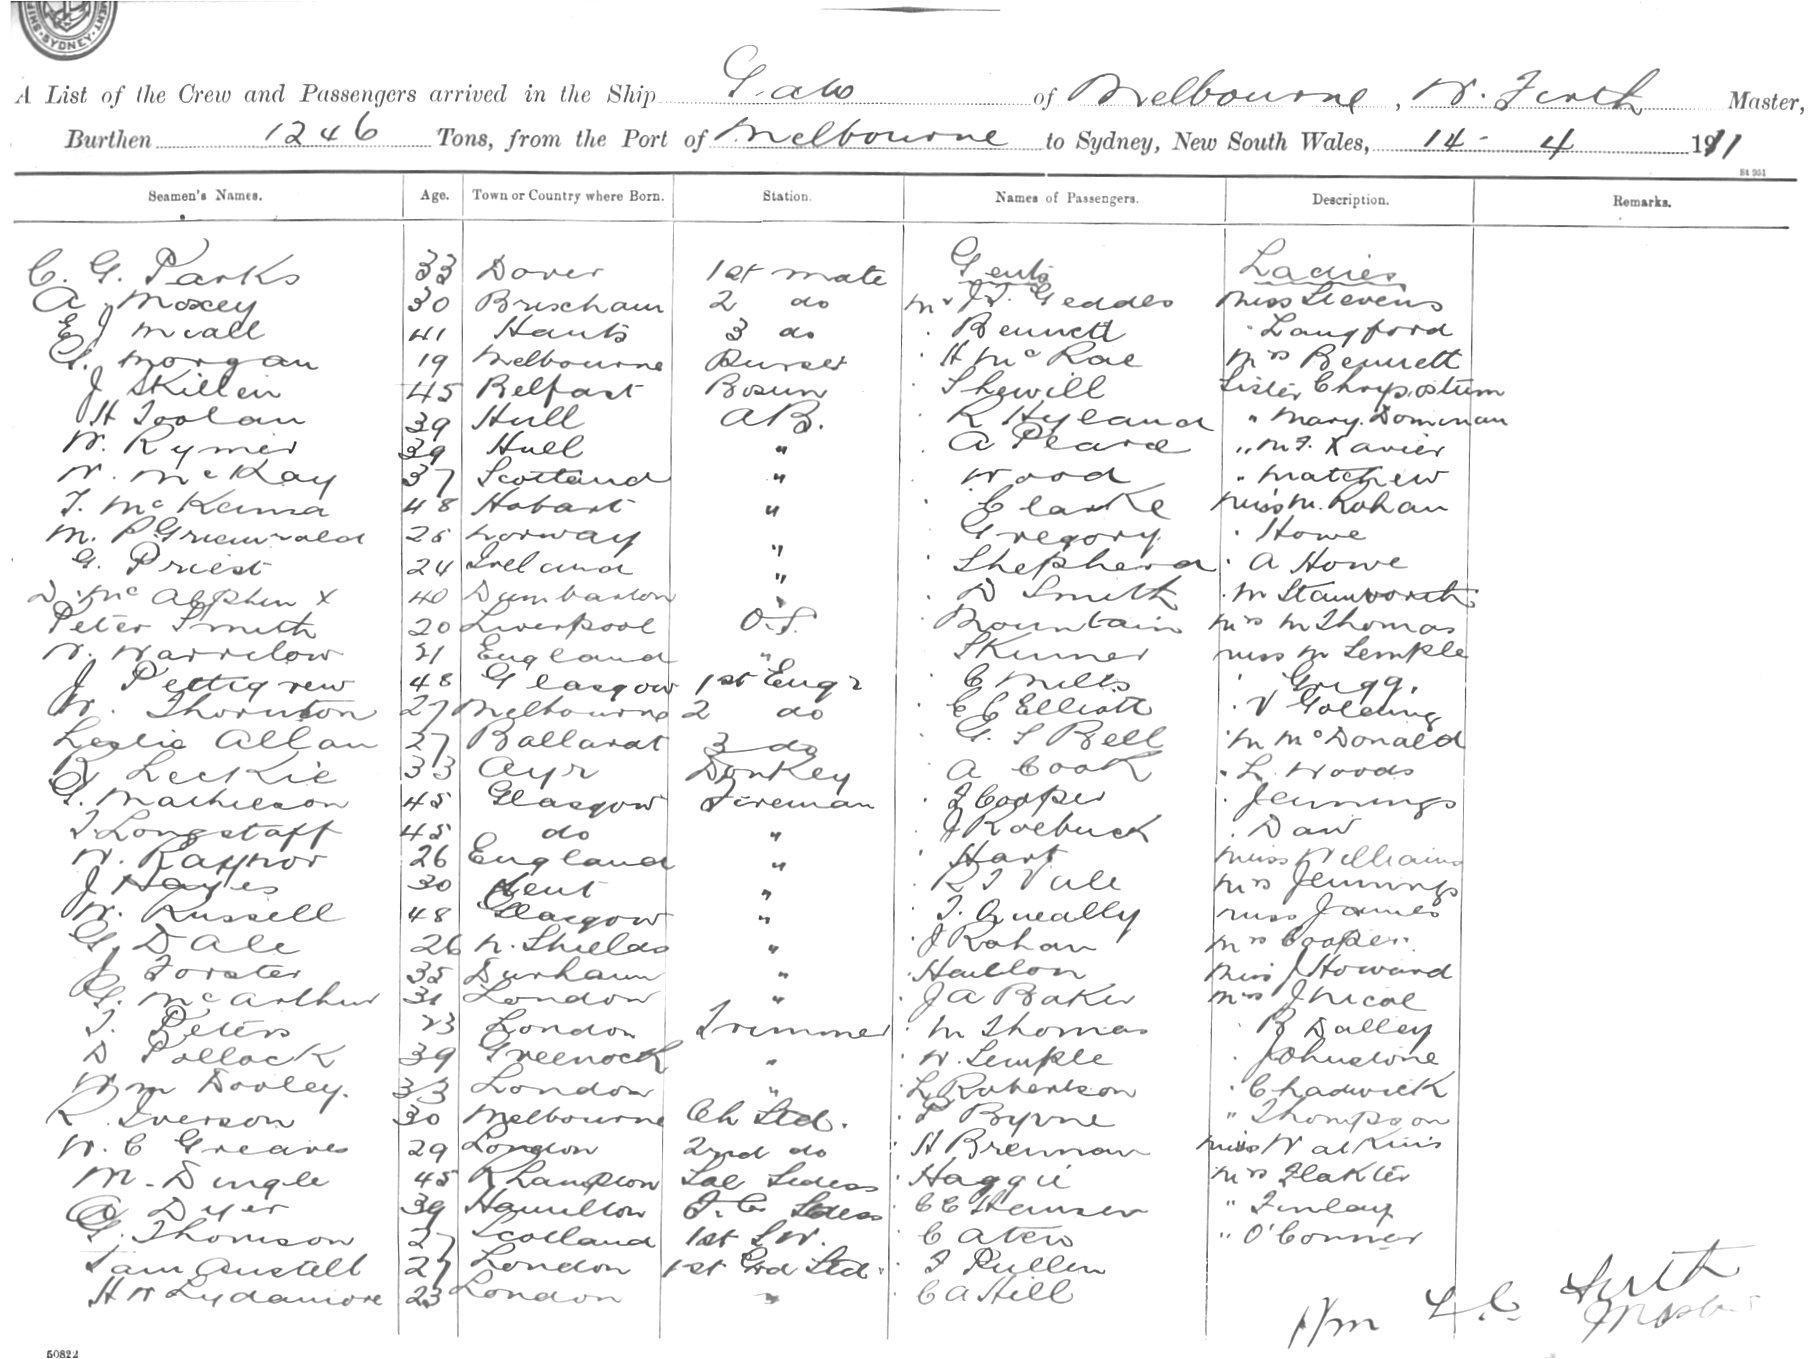 SYDNEY
A List of the Crew and Passengers arrived in the Ship Gabo of Melbourne, W. Firth Master,
Burthen 1246 Tons, from the Port of Melbourne to Sydney, New South Wales, 14 - 4 1911
St 951
Seamen's Names. Age. Town or Country where Born. Station. Names of Passengers. Description. Remarks.
C. G. Parks 33 Dover 1st mate Gents Ladies
A Moxey 30 Brixcham 2 do Mr J.T. Geddes Miss Stevens
E J McCall 41 Hants 3 do " Bennett " Langford
G. Morgan 19 Melbourne Purser " H McRae Mrs Bennett
J Skillen 45 Belfast Bosun " Shewill Sister Chrysostum
H Toolan 39 Hull AB. " R Hyland " Mary Dominan
W. Rymer 39 Hull " " A Pearce " M.F. Xavier
W. McKay 37 Scotland " " Wood " Matthew
T. McKenna 48 Hobart " " Clarke Miss M. Rohan
M. P. 25 Norway " " Gregory " Howe
G. Priest 24 Ireland " " Shepherd " A Howe
D. McAlphin x 40 Dumbarton " " D Smith " M Stanworth
Peter Smith 20 Liverpool O.S. " Mountain Mrs M Thomas
W. Warrilow 21 England " " Skinner Miss M Semple
J Pettigrew 48 Glasgow 1st Engr " C Mills " Grigg.
W. Thornton 27 Melbourne 2 do " C C Elliott " V Golding
Leslie Allan 27 Ballarat 3 do " G. S Bell " M McDonald
R Leckie 33 Ayr Donkey " A Cook " L. Woods
G. Mathieson 45 Glasgow Fireman " J Cooper " Jennings
T. Longstaff 45 do " " J Roebuck " Daw
W. Raynor 26 England " " Hart Miss Williams
J Hayes 30 Kent " " R T Vale Mrs Jennings
W. Russell 48 Glasgow " " T. Queally Miss James
G. Dale 26 N. Shields " " J Rohan Mrs Cooper
J Forster 35 Durham " " Miss J Howard
G. McArthur 31 London " " J A Baker Mrs J Nicol
T. Peters 23 London Trimmer " M Thomas " R Dalley
D Pollock 39 Greenock " " W. Semple " Johnstone
Wm Dooley. 33 London " " L Robertson " Chadwick
R. Iverson 30 Melbourne Ch Std. " P Byrne " Thompson
W. C Greaves 29 London 2nd do " H Brennan Miss Watkins
M. Dingle 45 Sal Stdess " Haggie Mrs
A Dyer 39 Hamilton Stdess " C C " Finlay
G. Thomson 27 Scotland 1st S.W. " C " O'Conner
Sam Austell 27 London 1st Grd Std. " F Pullen
H W Lydamore 23 London " " C A Hill
Firth
Master
50822